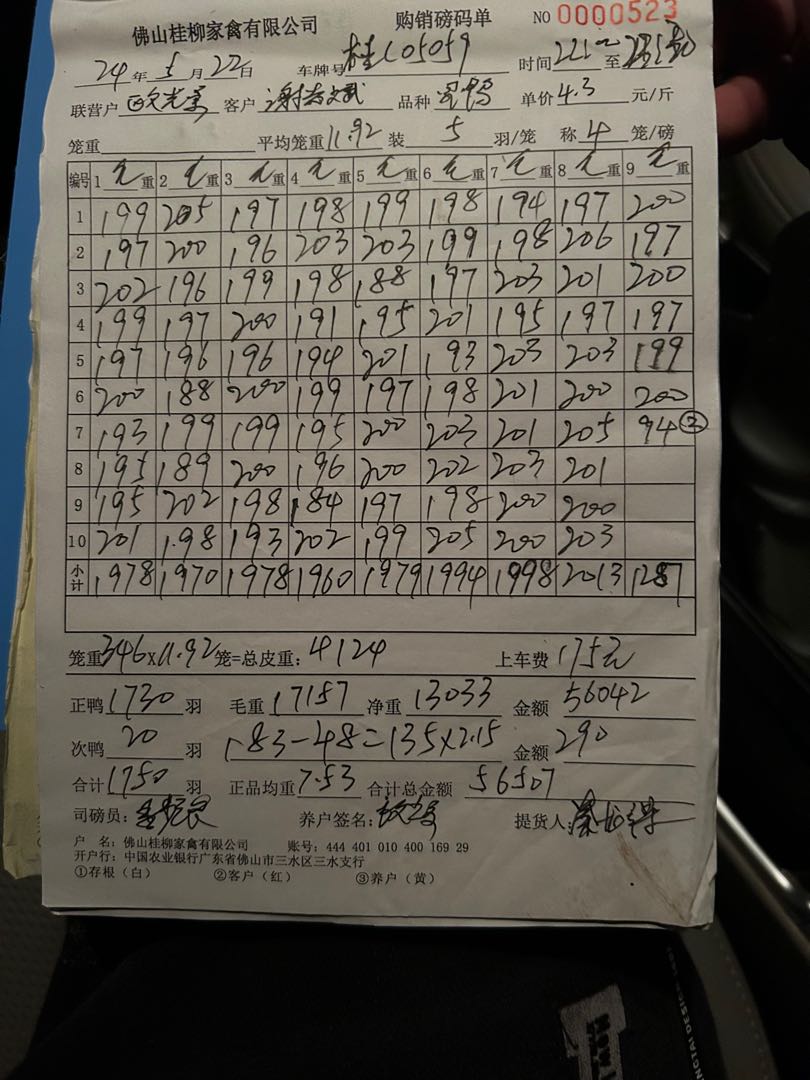 佛山桂柳家禽有限公司 购销磅码单 NO 0000523
24年5月22日 车牌号桂C05059 时间 至
联营户 客户 品种 单价4.3元/斤
笼重 平均笼重11.92 装5羽/笼 称4笼/磅
编号 1毛重 2毛重 3毛重 4毛重 5毛重 6毛重 7毛重 8毛重 9毛重
1 199 205 197 198 199 198 194 197 200
2 197 200 196 203 203 199 198 206 197
3 202 196 199 198 188 197 203 201 200
4 199 197 200 191 195 201 195 197 197
5 197 196 196 194 201 193 203 203 199
6 200 188 200 199 197 198 201 200 200
7 193 199 199 195 200 203 201 205 94②
8 195 189 200 196 200 202 203 201
9 195 202 198 184 197 198 200 200
10 201 198 193 202 199 205 200 203
小计 1978 1970 1978 1960 1979 1994 1998 2013 1287
笼重346×11.92笼=总皮重:4124 上车费175元
正鸭1730羽 毛重17157 净重13033 金额56042
次鸭20羽 183-48=135×2.15 金额290
合计1750羽 正品均重7.53 合计总金额56507
司磅员: 养户签名: 提货人:
户 名:佛山桂柳家禽有限公司 账号:444 401 010 400 169 29
开户行:中国农业银行广东省佛山市三水区三水支行
①存根(白) ②客户(红) ③养户(黄)